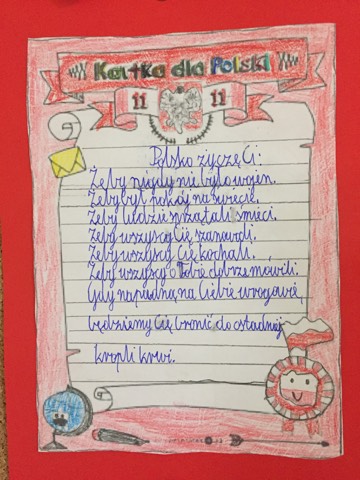 Kartka dla Polski
11 11
Polsko życzę Ci:
Żeby nigdy nie było wojen.
Żeby był pokój na świecie.
Żeby ludzie sprzątali śmieci.
Żeby wszyscy Cię szanowali.
Żeby wszyscy Cię kochali.
Żeby wszyscy o Tobie dobrze mówili.
Gdy napadną na Ciebie wrogowie,
będziemy Cię bronić do ostatniej
kropli krwi.